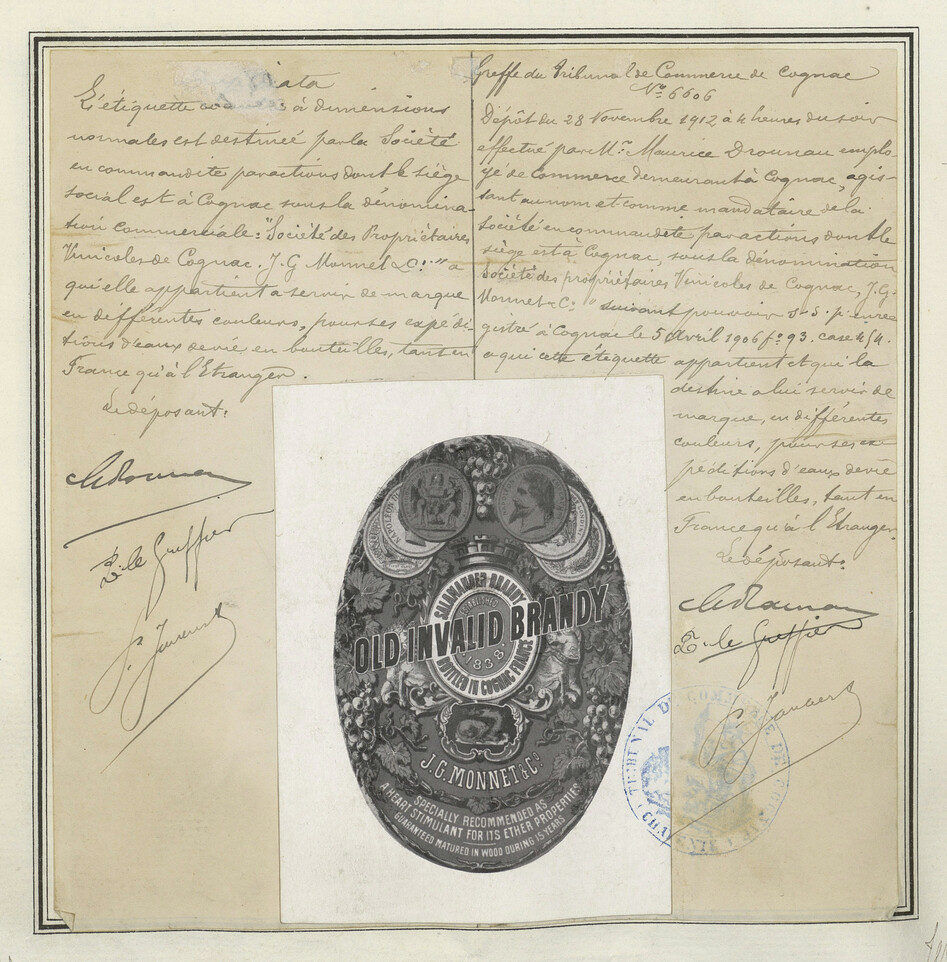 L'étiquette à dimensions
normales est destinée par la Société
en commandite par actions dont le siège
social est à Cognac sous la dénomina-
tion commerciale: "Société des Propriétaires
Vinicoles de Cognac, J. G Monnet & Cº" a
qui elle appartient a servir de marque
en différentes couleurs, pour ses expédi-
tions d'eaux de vie en bouteilles, tant en
France qu'à l'Etranger.
Le déposant:
P. le Greffier
Greffe du Tribunal de Commerce de Cognac
Nº 6606
Dépôt du 28 Novembre 1912 à 4 heures du soir
effectué par Mr. Maurice Drounau emplo-
yé de Commerce demeurant à Cognac, agis-
sant au nom et comme mandataire de la
Société en commandite par actions dont le
siège est à Cognac, sous la dénomination
Société des propriétaires Vinicoles de Cognac, J.G.
Monnet & Cº suivant pouvoir s.s.p. enre-
gistré à Cognac le 5 Avril 1906 fº 93. case 454.
a qui cette étiquette appartient et qui la
destine a lui servir de
marque, en différentes
couleurs, pour ses ex-
péditions d'eaux de vie
en bouteilles, tant en
France qu'à l'Etranger.
Le déposant:
P. le Greffier
SALAMANDER BRANDY
ESTABLISHED
OLD INVALID BRANDY
1838
BOTTLED IN COGNAC FRANCE
J.G. MONNET & Cº
SPECIALLY RECOMMENDED AS
A HEART STIMULANT FOR ITS ETHER PROPERTIES
GUARANTEED MATURED IN WOOD DURING 15 YEARS
TRIBUNAL DE COMMERCE DE